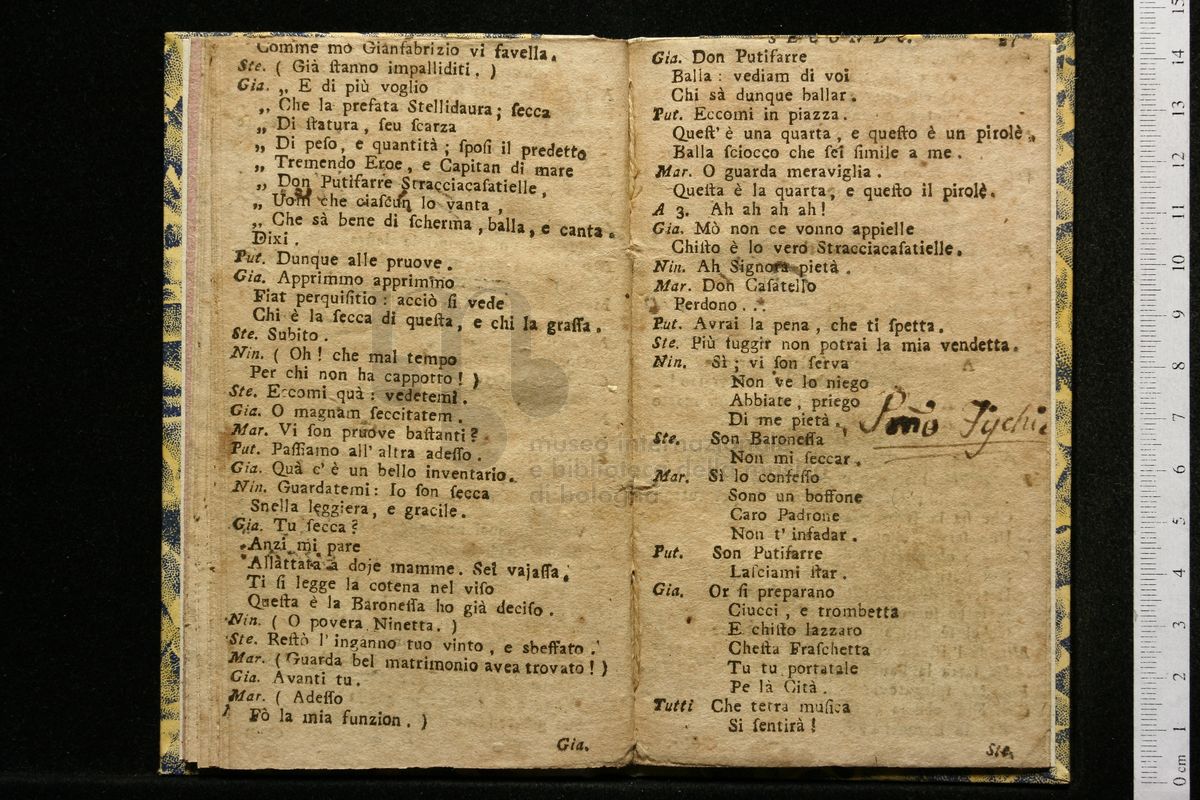 Comme mo Gianfabrizio vi favella.
Ste. ( Già ſtanno impalliditi. )
Gia. „ E di più voglio
„ Che la prefata Stellidaura; ſecca
„ Di ſtatura, ſeu ſcarza
„ Di peſo, e quantità; ſposi il predetto
„ Tremendo Eroe, e Capitan di mare
„ Don Putifarre Stracciacaſatielle,
„ Uom che ciaſcun lo vanta,
„ Che sà bene di ſcherma, balla, e canta.
Dixi.
Put. Dunque alle pruove.
Gia. Apprimmo apprimmo
Fiat perquiſitio: acciò ſi vede
Chi è la ſecca di queſta, e chi la graſſa.
Ste. Subito.
Nin. ( Oh! che mal tempo
Per chi non ha cappotto! )
Ste. Eccomi quà: vedetemi.
Gia. O magnam ſeccitatem.
Mar. Vi ſon pruove baſtanti?
Put. Paſſiamo all' altra adeſſo.
Gia. Quà c'è un bello inventario.
Nin. Guardatemi: Io ſon ſecca
Snella leggiera, e gracile.
Gia. Tu ſecca?
Anzi mi pare
Allattata a doje mamme. Sei vajaſſa,
Ti ſi legge la cotena nel viſo
Queſta è la Baroneſſa ho già deciſo.
Nin. ( O povera Ninetta. )
Ste. Reſtò l'inganno tuo vinto, e sbeffato.
Mar. ( Guarda bel matrimonio avea trovato! )
Gia. Avanti tu.
Mar. ( Adeſſo
Fò la mia funzion. )
Gia.
SECONDO. 27
Gia. Don Putifarre
Balla: vediam di voi
Chi sà dunque ballar.
Put. Eccomi in piazza.
Queſt' è una quarta, e queſto è un pirolè,
Balla ſciocco che ſei ſimile a me.
Mar. O guarda meraviglia.
Queſta è la quarta, e queſto il pirolè.
A 3. Ah ah ah ah!
Gia. Mò non ce vonno appielle
Chiſto è lo vero Stracciacaſatielle.
Nin. Ah Signora pietà.
Mar. Don Caſatello
Perdono...
Put. Avrai la pena, che ti ſpetta.
Ste. Più fuggir non potrai la mia vendetta.
Nin. Sì; vi ſon ſerva
Non ve lo niego
Abbiate, priego
Di me pietà.
Ste. Son Baroneſſa
Non mi ſeccar.
Mar. Sì lo confeſſo
Sono un boffone
Caro Padrone
Non t' infadar.
Put. Son Putifarre
Laſciami ſtar.
Gia. Or ſi preparano
Ciucci, e trombetta
E chiſto lazzaro
Cheſta Fraſchetta
Tu tu portatale
Pe là Cità.
Tutti Che tetra muſica
Si ſentirà!
Ste.
museo internazionale
e biblioteca della musica
di bologna